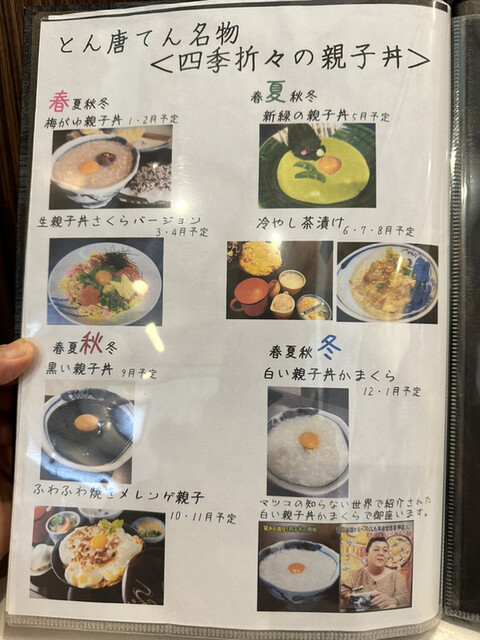 とん唐てん名物
<四季折々の親子丼>
春夏秋冬
梅がゆ親子丼 1・2月予定
生親子丼さくらバージョン
3・4月予定
春夏秋冬
新緑の親子丼 5月予定
冷やし茶漬け
6・7・8月予定
春夏秋冬
黒い親子丼 9月予定
ふわふわ焼きメレンゲ親子
10・11月予定
春夏秋冬
白い親子丼かまくら
12・1月予定
マツコの知らない世界で紹介された
白い親子丼かまくらで御座います。